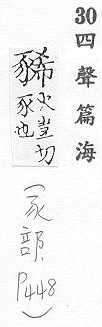 30四聲篇海
豨
火豈切
豕也
(豕部, P448)